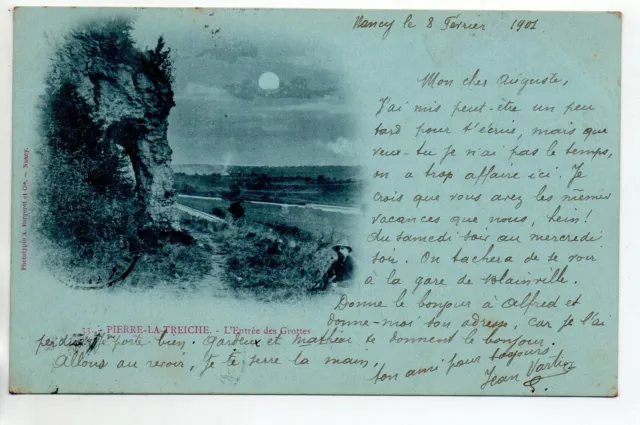 Nancy le 8 Février 1901
Mon cher Auguste,
J'ai mis peut-être un peu
tard pour t'écrire, mais que
veux-tu je n'ai pas le temps,
on a trop affaire ici. Je
crois que vous avez les mêmes
vacances que nous, hein!
du samedi soir au mercredi
soir. On tachera de se voir
à la gare de Blainville.
Donne le bonjour à Alfred et
donne-moi son adresse, car je l'ai
perdue. Je porte bien. Gardeux et Mathieu te donnent le bonjour.
Allons au revoir, je te serre la main,
ton ami pour toujours
Jean
PIERRE-LA-TREICHE. - L'Entrée des Grottes
Phototypie A. Bergeret et Cie. — Nancy.